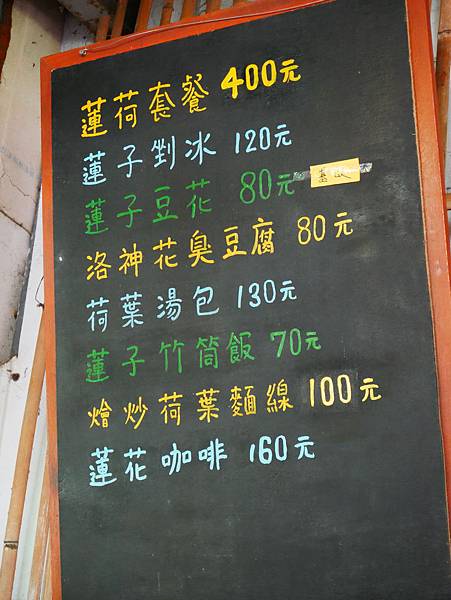 蓮荷套餐 400元
蓮子剉冰 120元
蓮子豆花 80元
洛神花臭豆腐 80元
荷葉湯包 130元
蓮子竹筒飯 70元
燴炒荷葉麵線 100元
蓮花咖啡 160元